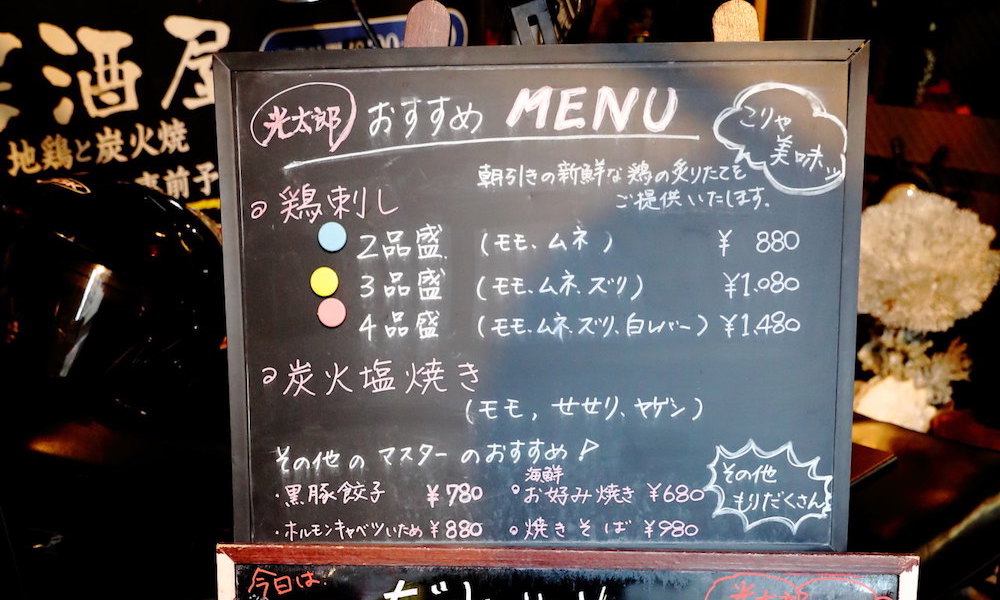 酒屋
地鶏と炭火焼
光太郎 おすすめ MENU
こりゃ
美味ッ
朝引きの新鮮な鶏の炙りたてを
ご提供いたします。
鶏刺し
2品盛 (モモ、ムネ) ¥ 880
3品盛 (モモ、ムネ、ズリ) ¥1.080
4品盛 (モモ、ムネ、ズリ、白レバー) ¥1,480
炭火塩焼き
(モモ, せせり、ヤゲン)
その他のマスターのおすすめ!
・黒豚餃子 ¥780
海鮮
お好み焼き ¥680
・ホルモンキャベツいため ¥880
焼きそば ¥980
その他
もりだくさん
今日は